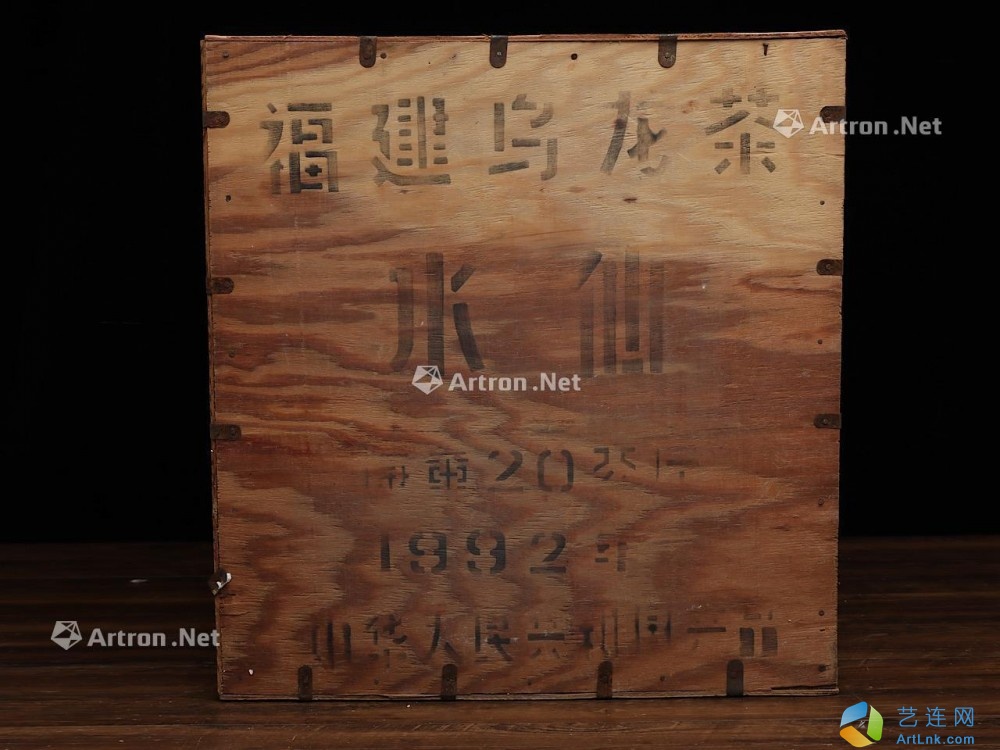 福建乌龙茶
水仙
净重20公斤
1992年
中华人民共和国产品
Artron.Net
Artron.Net
Artron.Net
艺连网
ArtLnk.com